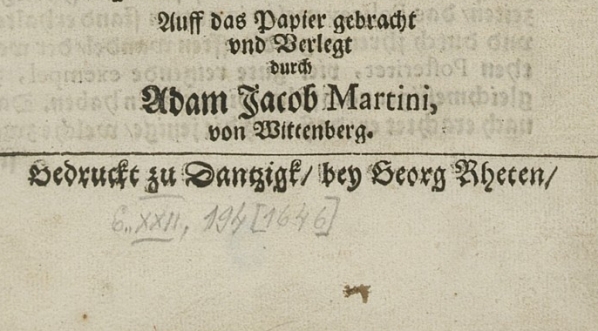 Auff das Papier gebracht
vnd Verlegt
durch
Adam Jacob Martini,
von Wittenberg.
Gedruckt zu Dantzigk/ bey Georg Rheten/
XXII, 194 [1646]